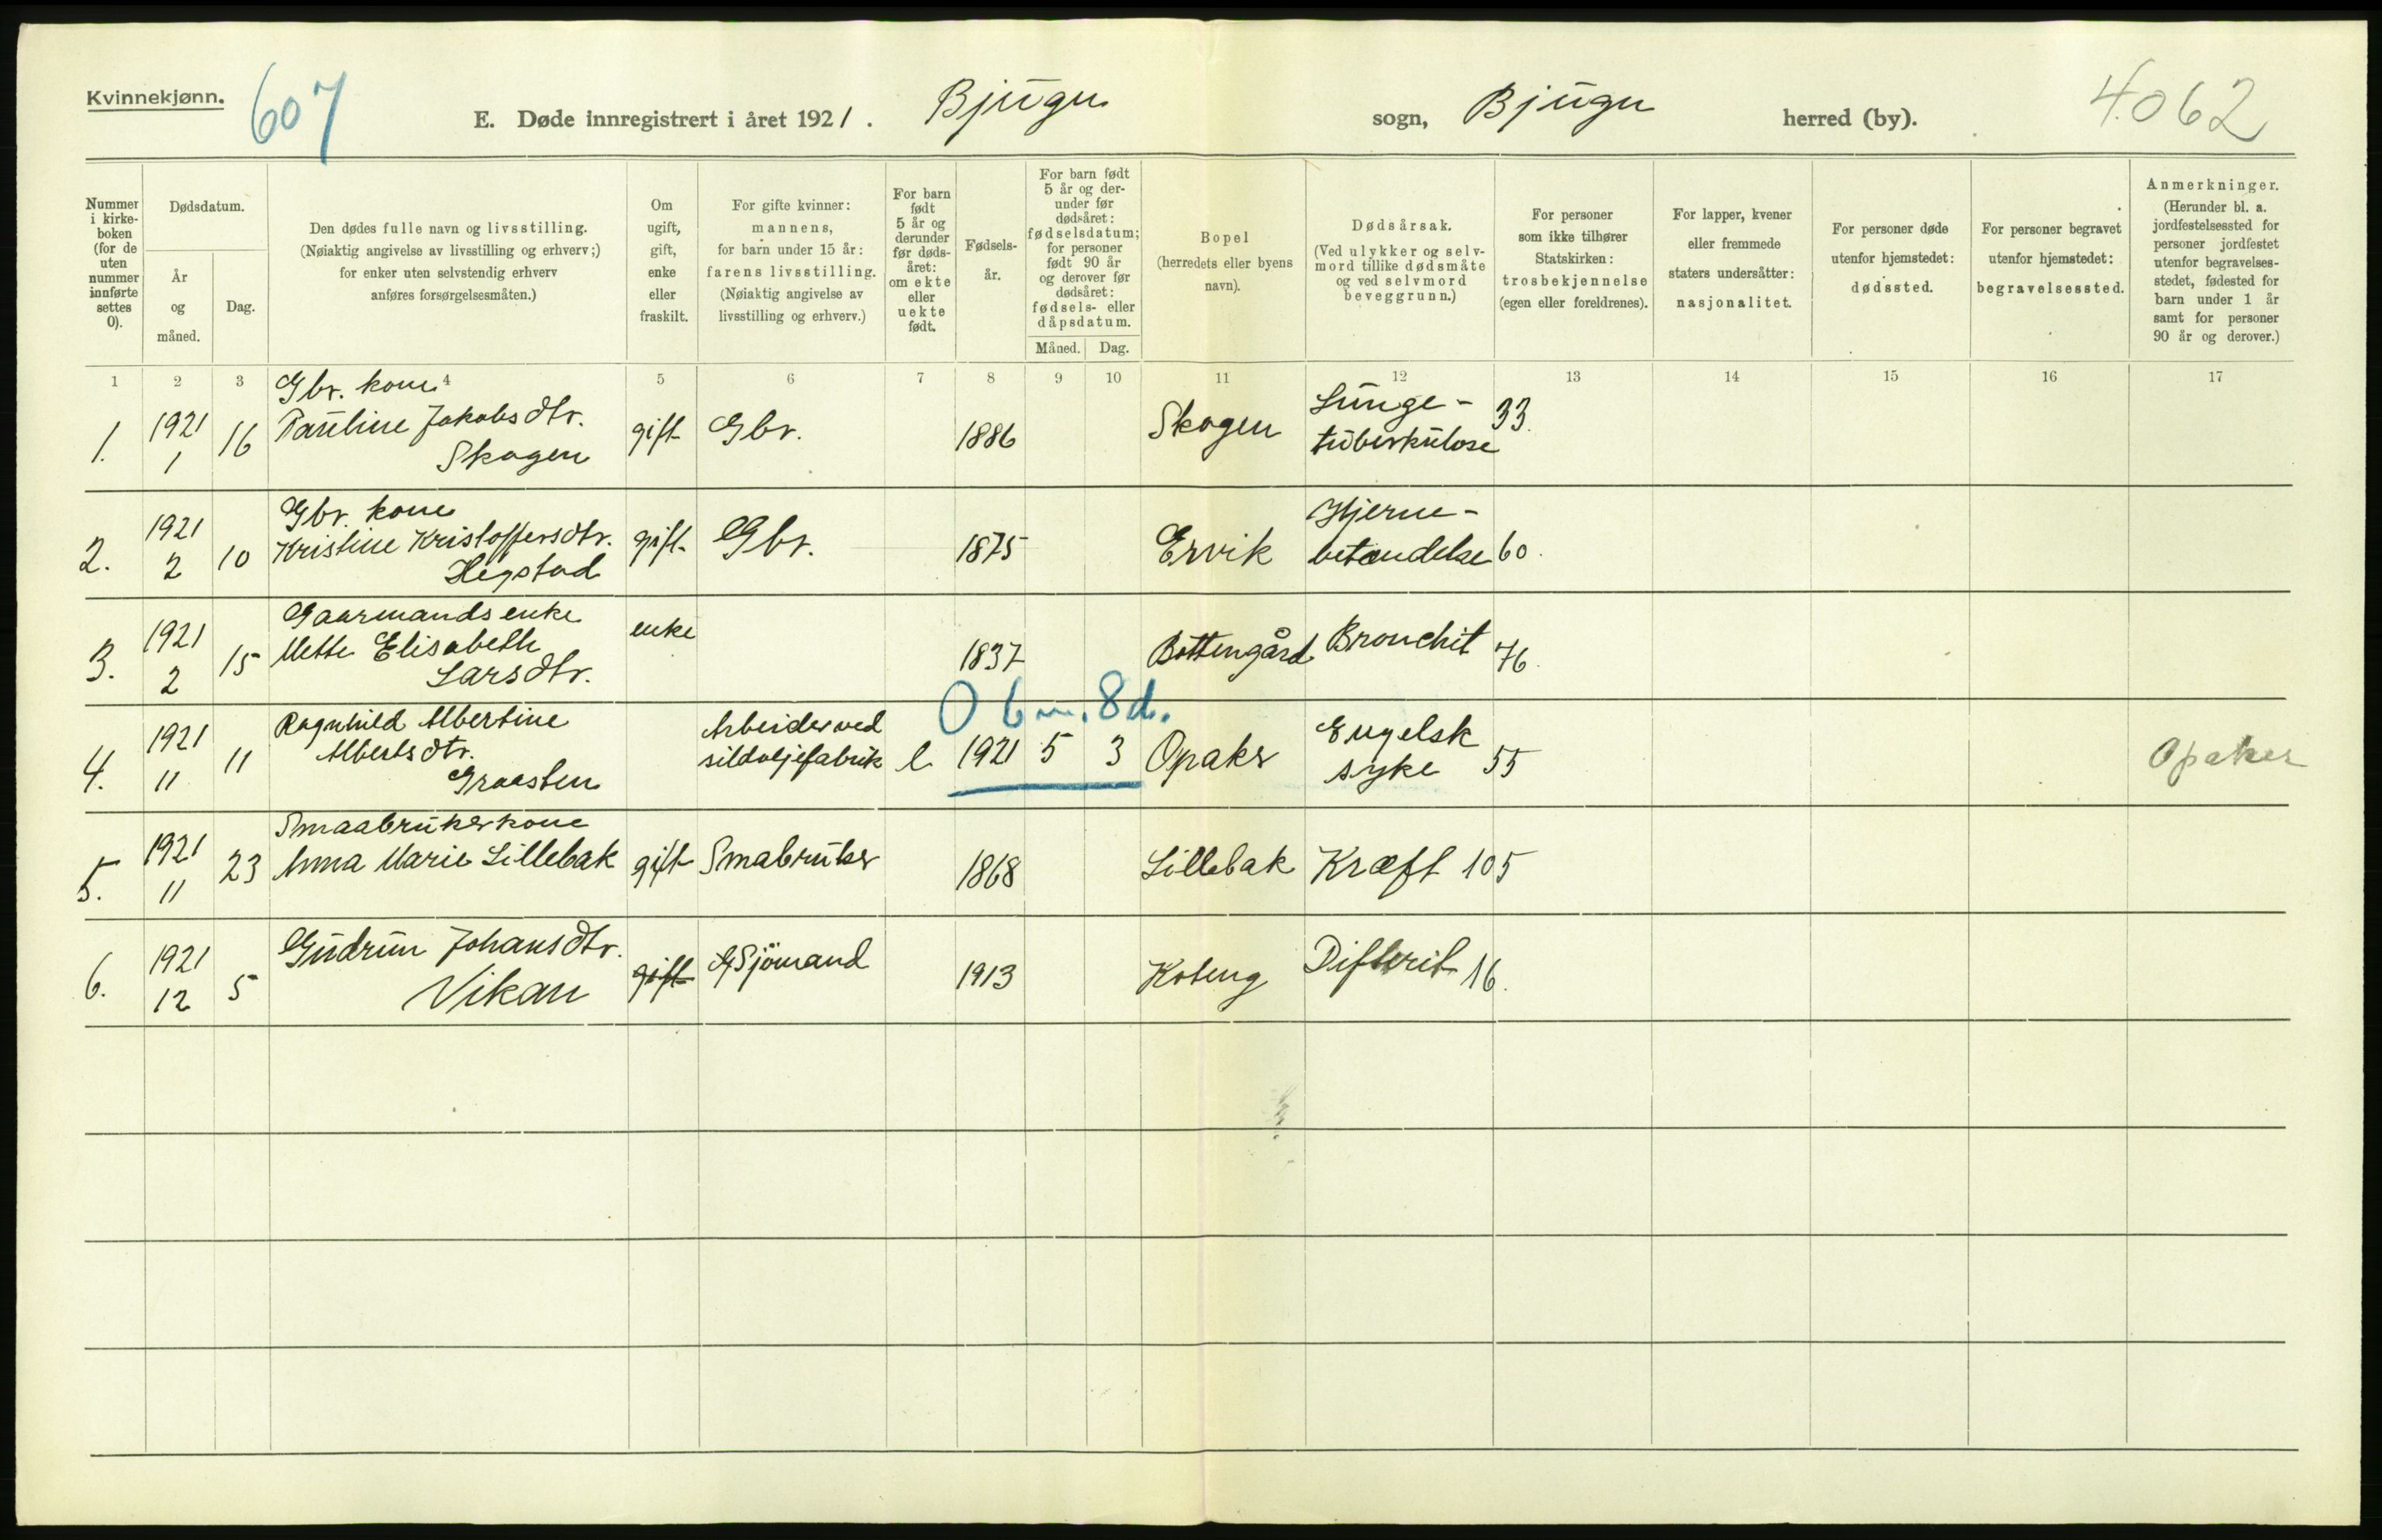 Kvinnekjønn.
607
E. Døde innregistrert i året 1921. Bjugn sogn, Bjugn herred (by).
4.062
Nummer i kirke- boken (for de uten nummer innførte settes 0).
Dødsdatum.
År og måned.
Dag.
Den dødes fulle navn og livsstilling.
(Nøiaktig angivelse av livsstilling og erhverv;)
for enker uten selvstendig erhverv
anføres forsørgelsesmåten.)
Om ugift, gift, enke eller fraskilt.
For gifte kvinner:
mannens,
for barn under 15 år:
farens livsstilling.
(Nøiaktig angivelse av
livsstilling og erhverv.)
For barn født 5 år og derunder før døds- året: om ekte eller uekte født.
Fødsels- år.
For barn født 5 år og der- under før dødsåret: fødselsdatum; for personer født 90 år og derover før dødsåret: fødsels- eller dåpsdatum.
Måned.
Dag.
Bopel
(herredets eller byens
navn).
Dødsårsak.
(Ved ulykker og selv-
mord tillike dødsmåte
og ved selvmord
beveggrunn.)
For personer
som ikke tilhører
Statskirken:
trosbekjennelse
(egen eller foreldrenes).
For lapper, kvener
eller fremmede
staters undersåtter:
nasjonalitet.
For personer døde
utenfor hjemstedet:
dødssted.
For personer begravet
utenfor hjemstedet:
begravelsessted.
Anmerkninger.
(Herunder bl. a.
jordfestelsessted for
personer jordfestet
utenfor begravelses-
stedet, fødested for
barn under 1 år
samt for personer
90 år og derover.)
1 2 3 4 5 6 7 8 9 10 11 12 13 14 15 16 17
1. 1921 1 16 Gbr. kone Pauline Jakobsdtr. Skogen gift Gbr. 1886 Skogen Lunge- tuberkulose 33.
2. 1921 2 10 Gbr. kone Kristine Kristoffersdtr. Hegstad gift Gbr. 1875 Ervik Hjerne- betændelse 60.
3. 1921 2 15 Gaarmandsenke Mette Elisabeth Larsdtr. enke 1837 Bottengård Bronchit 76.
0 6 m. 8 d.
4. 1921 11 11 Ragnhild Albertine Albertsdtr. Graasten Arbeider ved sildoljefabrik 1921 5 3 Opaker Engelsk syke 55 Opaker
5. 1921 11 23 Smaabrukerkone Anna Marie Lillebak gift Smabruker 1868 Lillebak Kræft 105
6. 1921 12 5 Gudrun Johansdtr. Vikan gift Sjömand 1913 Koteng Difterit 16.